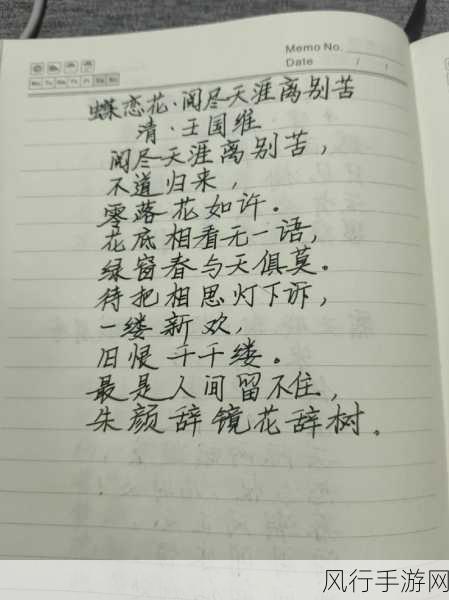 Memo No.
Date / /
Mo Tu We Th Fr Sa Su
蝶恋花·阅尽天涯离别苦
清·王国维
阅尽天涯离别苦，
不道归来，
零落花如许。
花底相看无一语，
绿窗春与天俱莫。
待把相思灯下诉，
一缕新欢，
旧恨千千缕。
最是人间留不住，
朱颜辞镜花辞树。
风行手游网